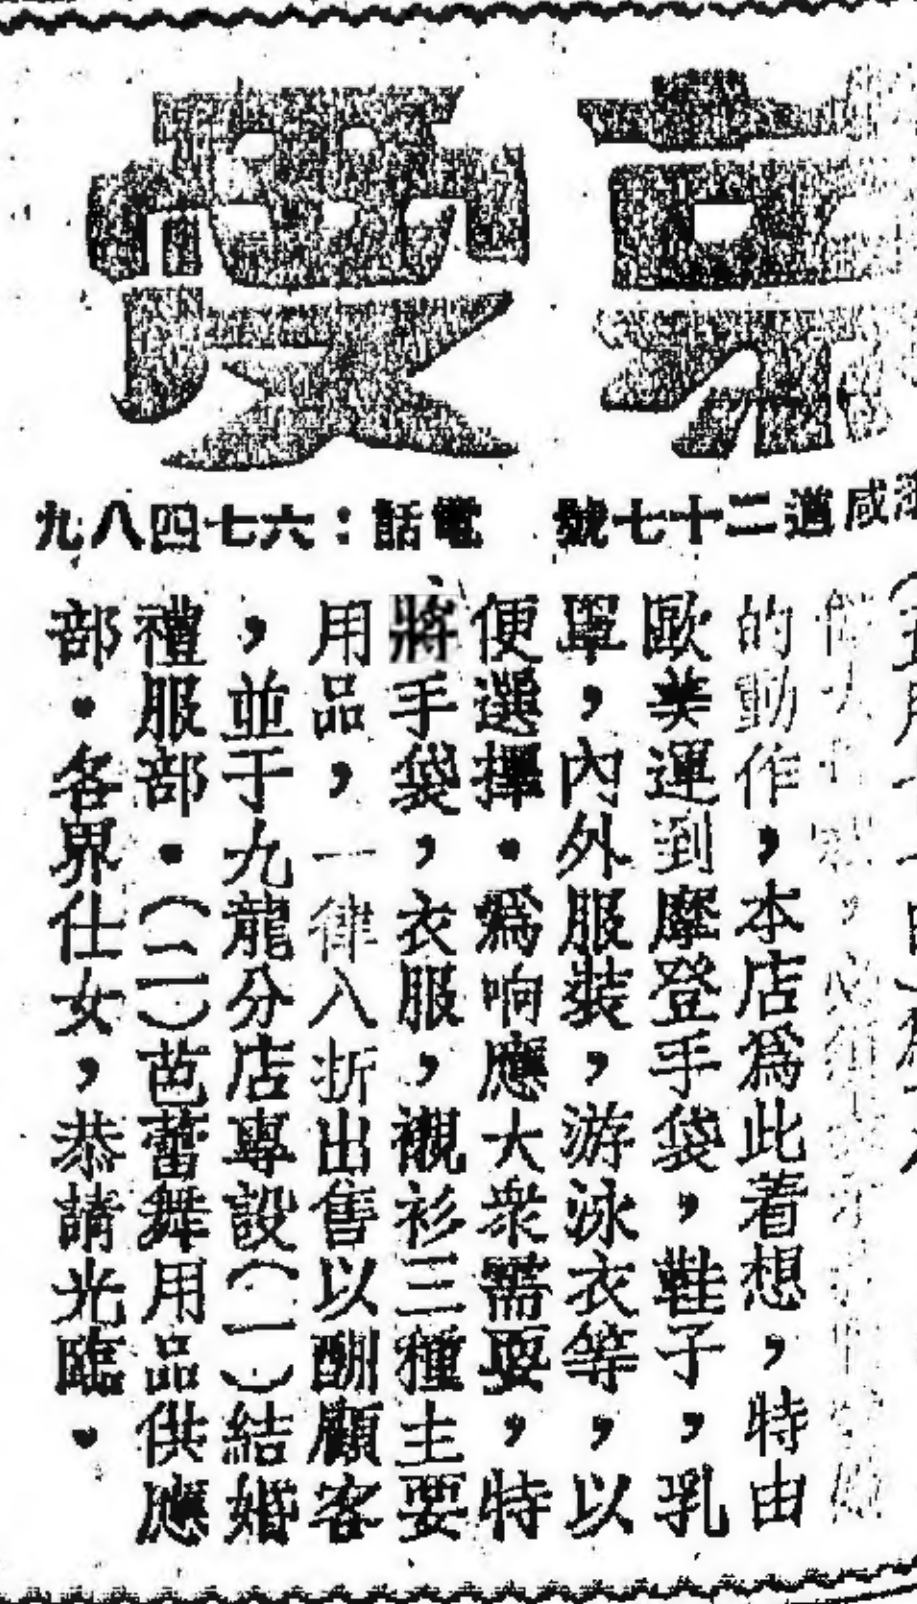 咸道二十七號　電話：六七四八九
的動作，本店爲此着想，特由
歐美運到摩登手袋，鞋子，乳
單，內外服裝，游泳衣等，以
便選擇．爲响應大衆需要，特
將手袋，衣服，襯衫三種主要
用品，一律入折出售以酬顧客
，並于九龍分店專設（一）結婚
禮服部．（二）芭蕾舞用品供應
部．各界仕女，恭請光臨．